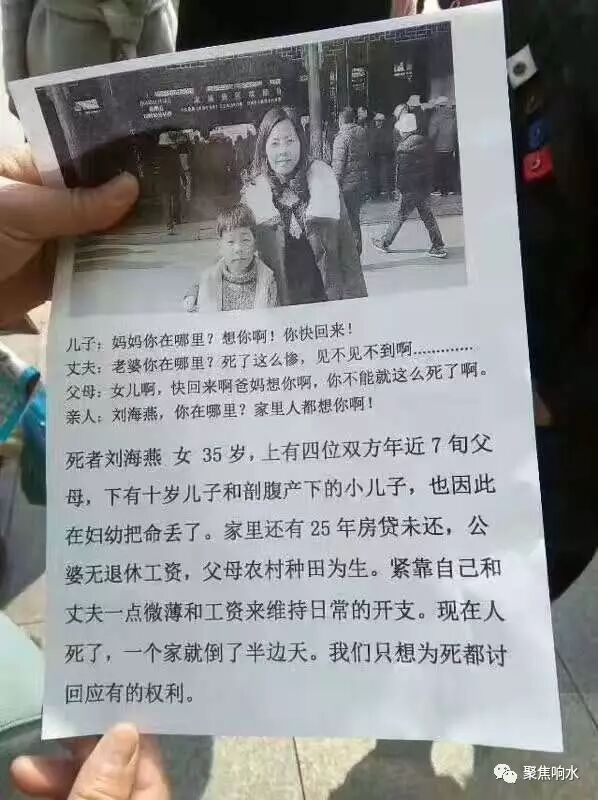 儿子：妈妈你在哪里？想你啊！你快回来！
丈夫：老婆你在哪里？死了这么惨，见不见不到啊.............
父母：女儿啊，快回来啊爸妈想你啊，你不能就这么死了啊。
亲人：刘海燕，你在哪里？家里人都想你啊！
死者刘海燕 女 35 岁，上有四位双方年近 7 旬父
母，下有十岁儿子和剖腹产下的小儿子，也因此
在妇幼把命丢了。家里还有 25 年房贷未还，公
婆无退休工资，父母农村种田为生。紧靠自己和
丈夫一点微薄和工资来维持日常的开支。现在人
死了，一个家就倒了半边天。我们只想为死都讨
回应有的权利。
聚焦响水